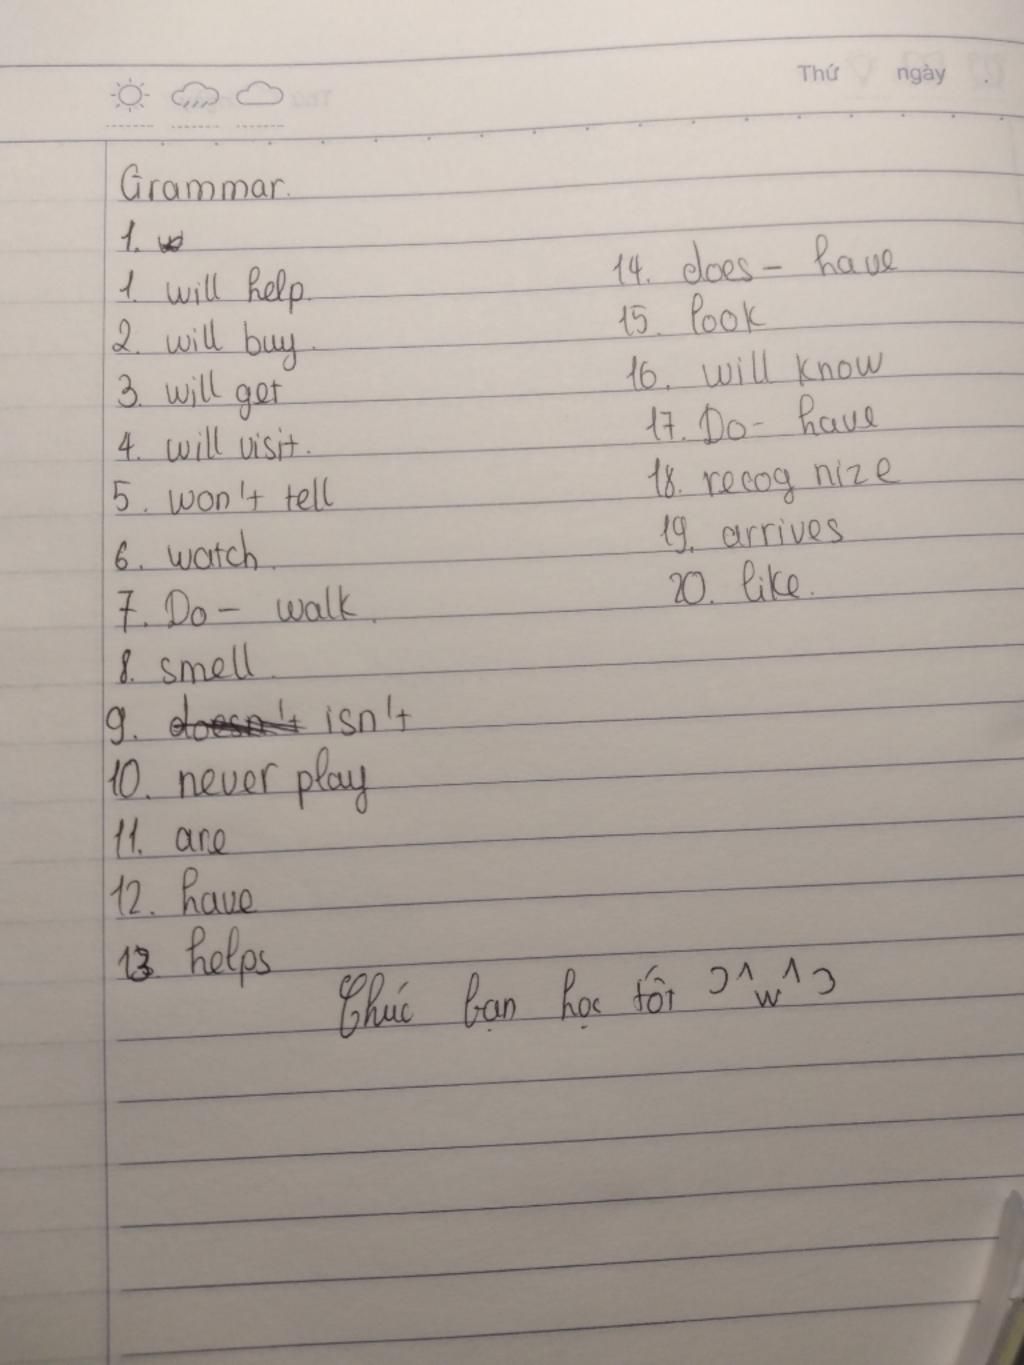 Thứ ngày .
Grammar.
1.
1. will help.
2. will buy.
3. will get
4. will visit.
5. won't tell
6. watch.
7. Do – walk.
8. smell.
9. doesn't isn't
10. never play
11. are
12. have
13 helps
14. does – have
15. look
16. will know
17. Do – have
18. recog nize
19. arrives
20. like.
Chúc bạn học tốt ɔ^w^ɔ